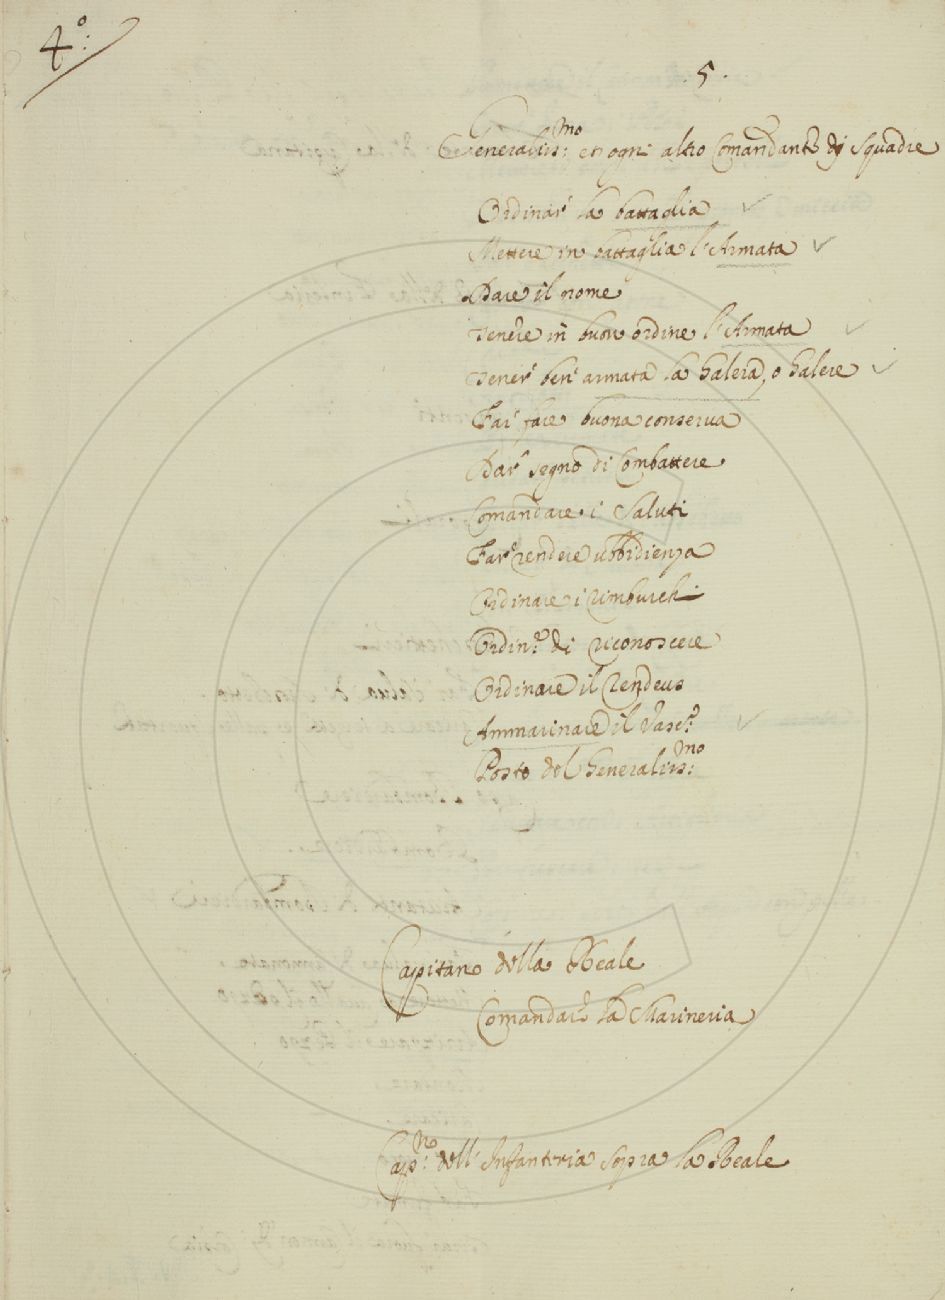 4º:
. 5 .
Generaliss:mo et ogni altro Comandante di Squadre
Ordinar' la battaglia
Mettere in battaglia l'Armata
Dare il nome
Tenere in buon ordine l'Armata
Tener' ben' armata la Galera, o Galere
Far' fare buona conserva
Dar' segno di Combattere
Comandare i Saluti
Far' rendere ubbidienza
Ordinare i rimburchi
Ordin:e di riconoscere
Ordinare il Rendeus
Ammarinare il Vasc:o
Posto del Generaliss:mo
Capitano della Reale
Comandar' la Marineria
Cap:no dell' Infanteria sopra la Reale